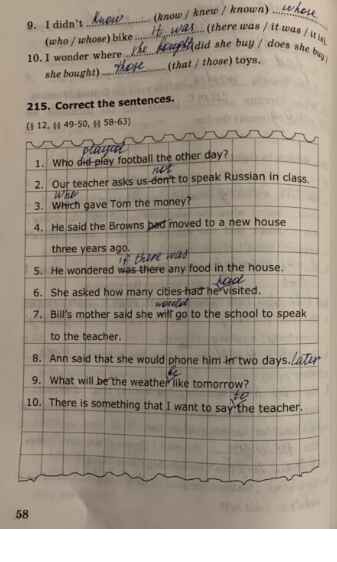 9. I didn't know (know / knew / known) whose
(who / whose) bike it was (there was / it was / it is).
10. I wonder where she bought (did she buy / does she buy /
she bought) those (that / those) toys.
215. Correct the sentences.
(§ 12, §§ 49-50, §§ 58-63)
played
1. Who did play football the other day?
not
2. Our teacher asks us don't to speak Russian in class.
Who
3. Which gave Tom the money?
4. He said the Browns had moved to a new house
three years ago.
if there was
5. He wondered was there any food in the house.
had
6. She asked how many cities had he visited.
would
7. Bill's mother said she will go to the school to speak
to the teacher.
8. Ann said that she would phone him in two days. later
be
9. What will be the weather like tomorrow?
to
10. There is something that I want to say the teacher.
58